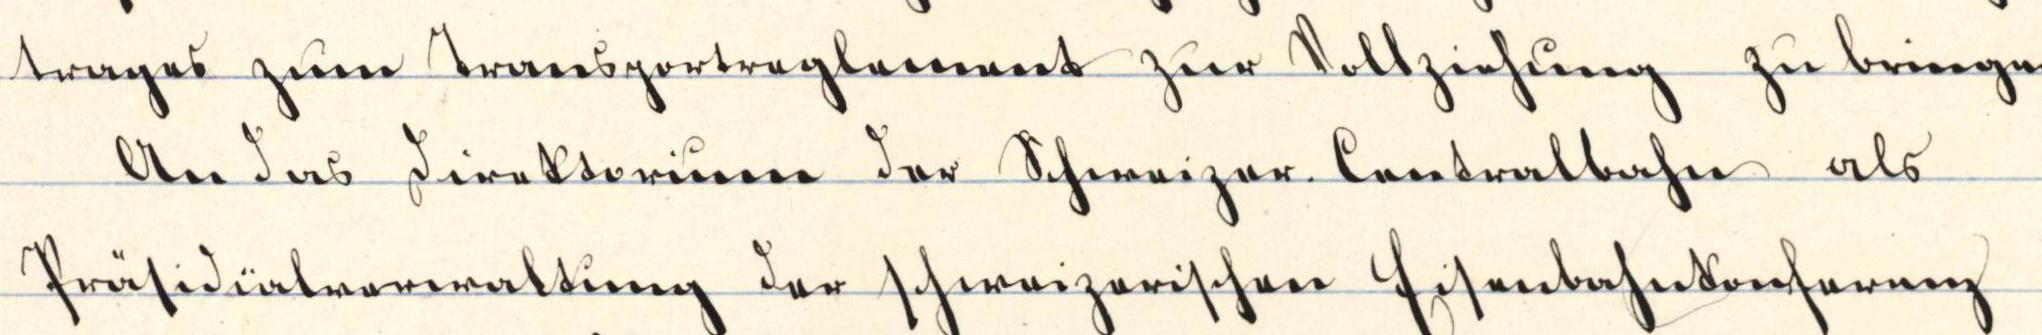 trages zum Transportreglement zur Vollziehung zu bringen
An das Direktorium der Schweizer. Centralbahn als
Präsidialverwaltung der schweizerischen Eisenbahnkonferenz